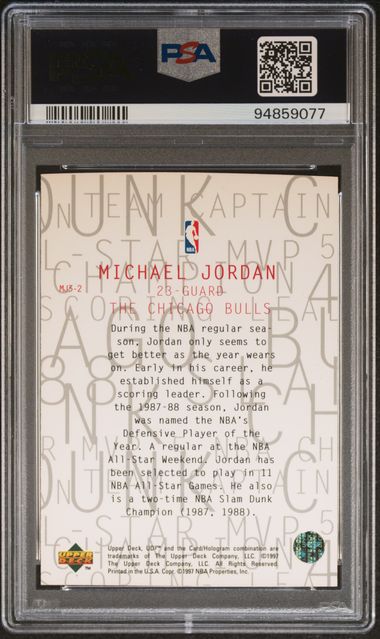 PSA
94859077
NBA
MICHAEL JORDAN
MJ3-2
23-GUARD
THE CHICAGO BULLS
During the NBA regular sea-
son, Jordan only seems to
get better as the year wears
on. Early in his career, he
established himself as a
scoring leader. Following
the 1987-88 season, Jordan
was named the NBA's
Defensive Player of the
Year. A regular at the NBA
All-Star Weekend, Jordan has
been selected to play in 11
NBA All-Star Games. He also
is a two-time NBA Slam Dunk
Champion (1987, 1988).
UPPER DECK
Upper Deck, UD³™ and the Card/Hologram combination are
trademarks of The Upper Deck Company, LLC. ©1997
The Upper Deck Company, LLC. All Rights Reserved.
Printed in the U.S.A. Copr. ©1997 NBA Properties, Inc.